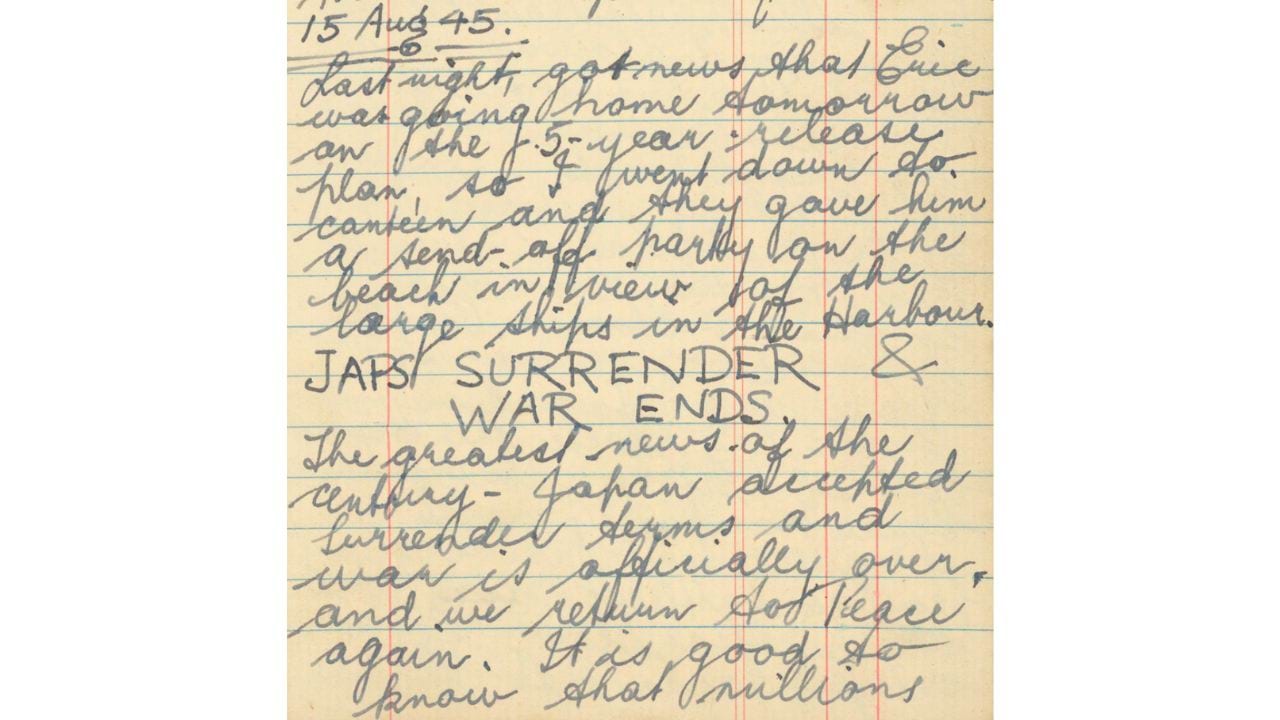 15 Aug 45.
Last night, got news that Eric
was going home tomorrow
on the 5-year release
plan, so I went down to
canteen and they gave him
a send-off party on the
beach in view of the
large ships in the Harbour.
JAPS SURRENDER &
WAR ENDS.
The greatest news of the
century - Japan accepted
surrender terms and
war is officially over,
and we return to Peace
again. It is good to
know that millions